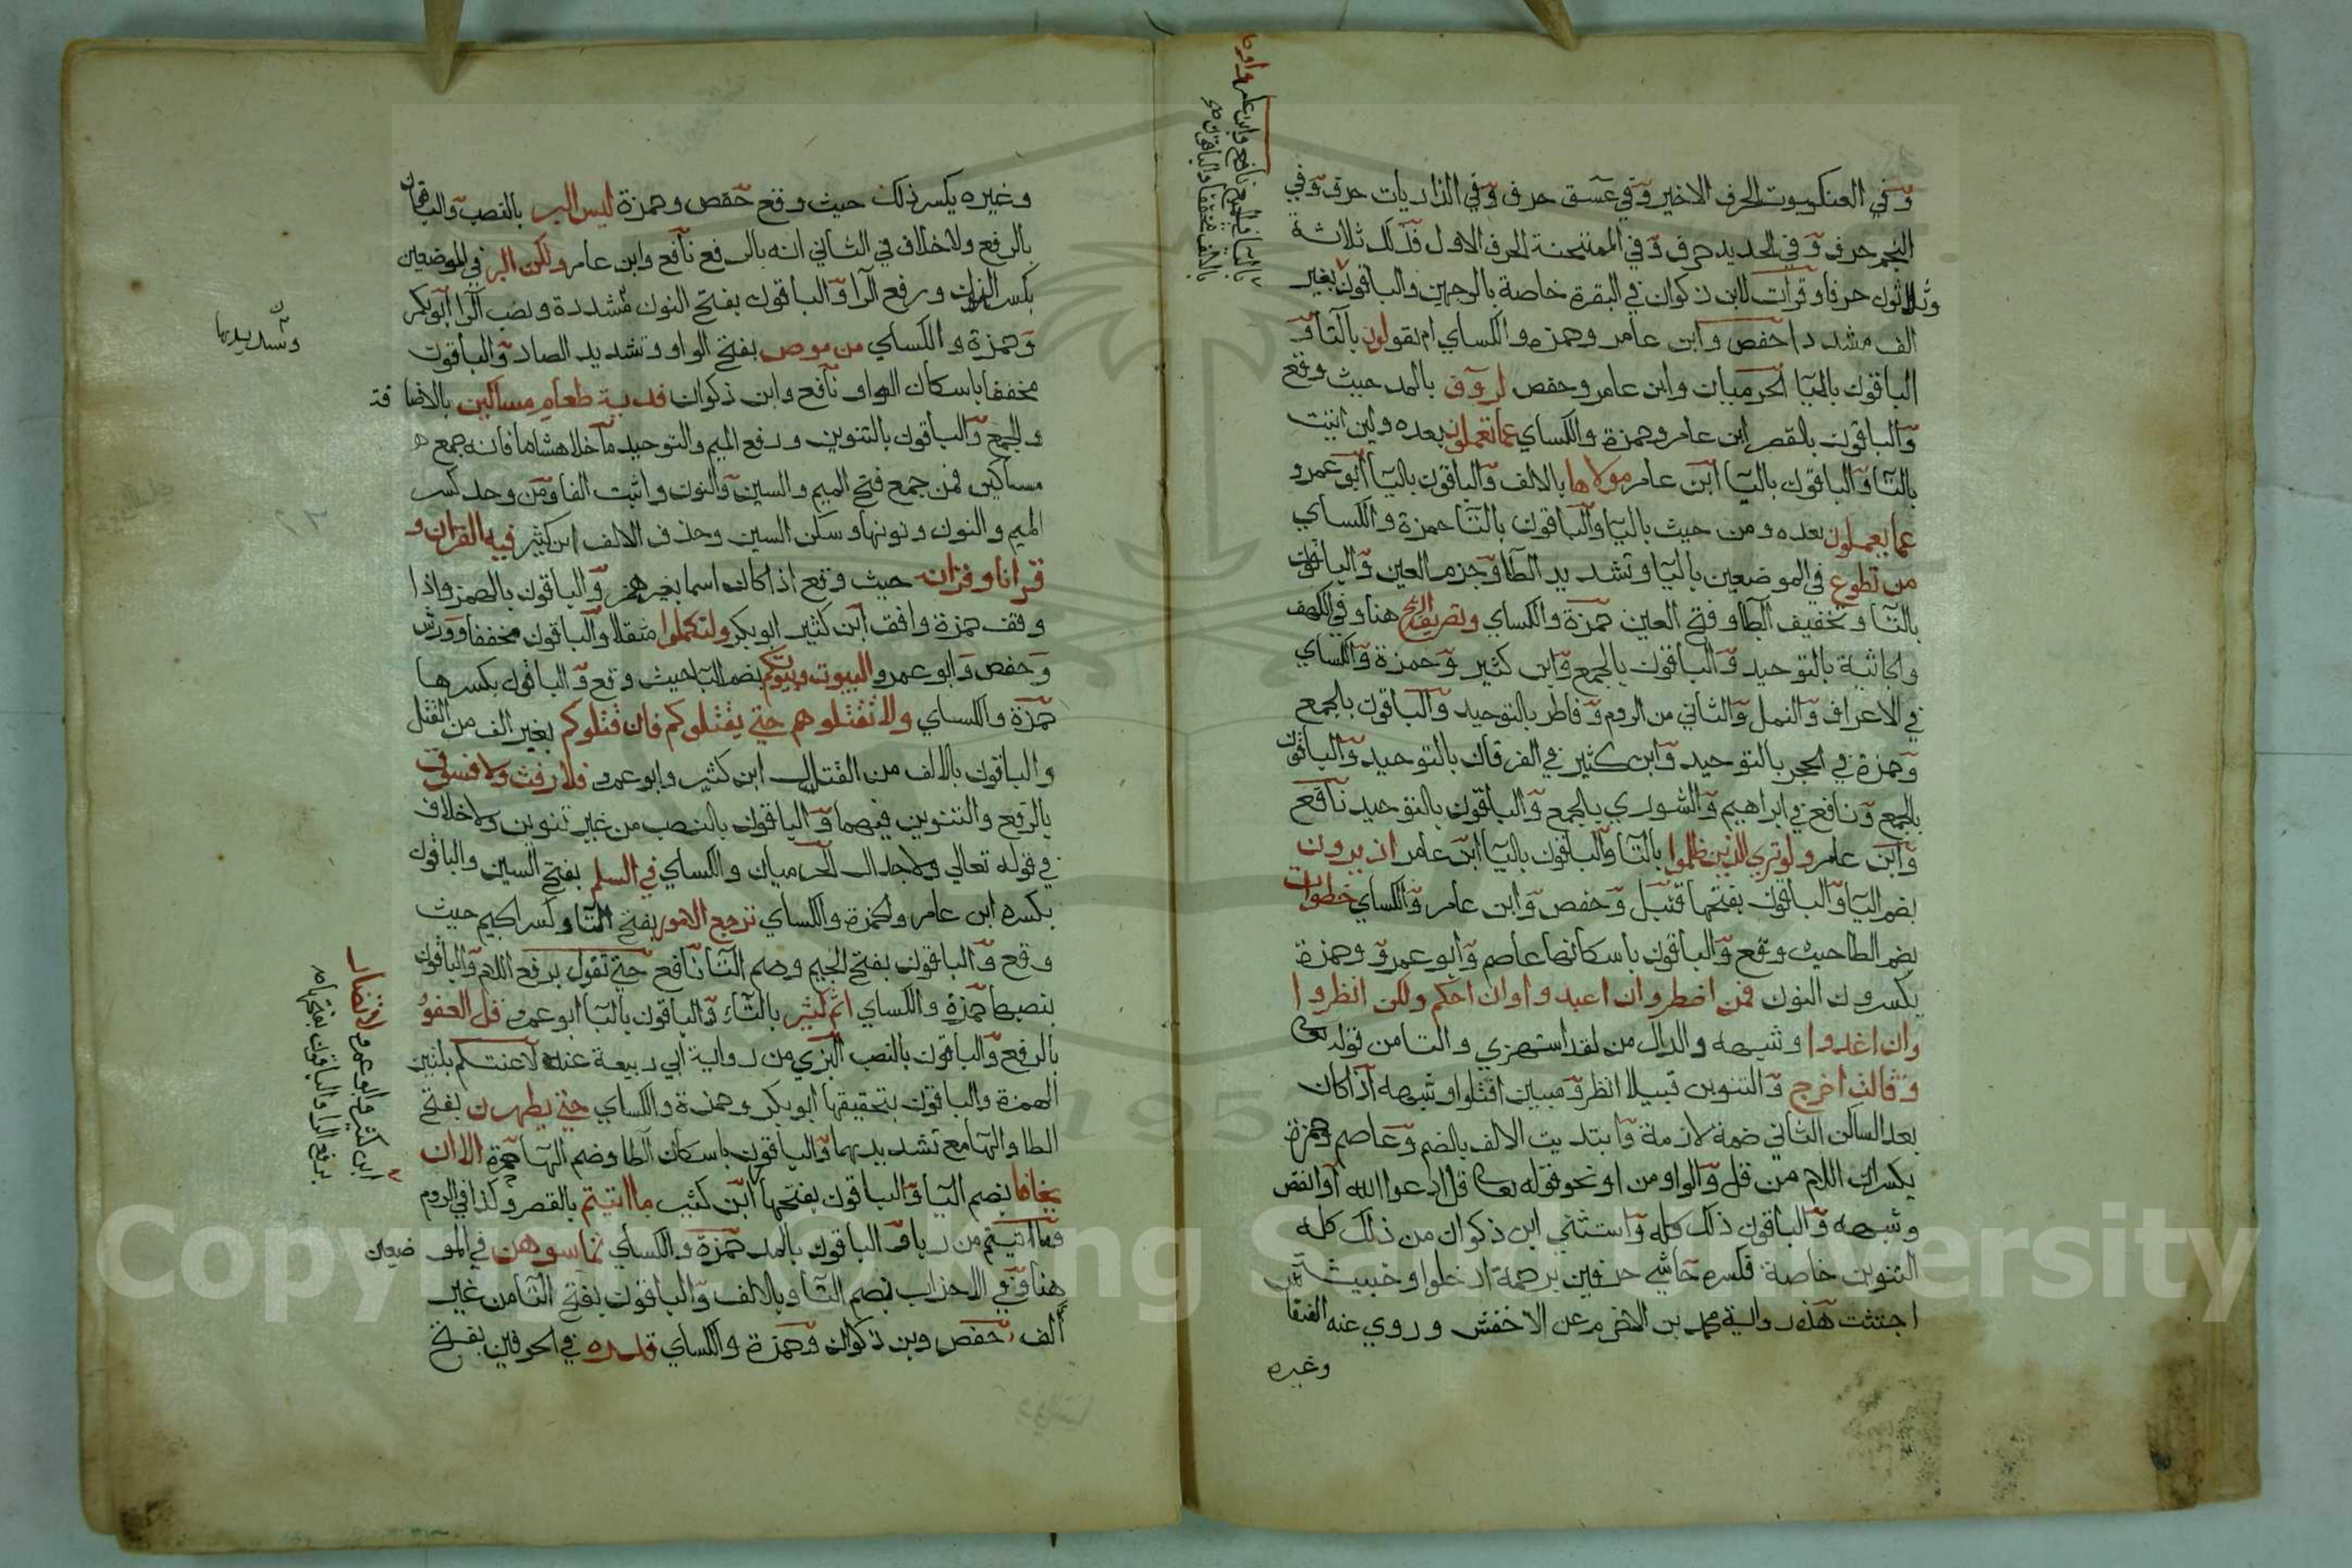 وفي العنكبوت الحرف الاخير وفي عسق حرف وفي الذاريات حرف وفي
النجم حرف وفي الحديد حرف وفي الممتحنة الحرف الاول فذلك ثلاثة
وثلاثون حرفا وقرات لابن ذكوان في البقرة خاصة بالوجهين والباقون بغير
الف مشددا حفص وابن عامر وحمزه والكساي ام تقولون بالتا و
الباقون باليا الحرميان وابن عامر وحفص لروف بالمد حيث وقع
والباقون بالقصر ابن عامر وحمزة والكساي عما تعملون بعده ولين اتيت
بالتا والباقون باليا ابن عامر مولاها بالالف والباقون باليا ابو عمرو
عما يعملون بعده ومن حيث باليا والباقون بالتا حمزة والكساي
من تطوع في الموضعين باليا وتشديد الطا وجزم العين والباقون
بالتا وتخفيف الطا وفتح العين حمزة والكساي وتصريف الريح هنا وفي الكهف
والجاثية بالتوحيد والباقون بالجمع وابن كثير وحمزة والكساي
في الاعراف والنمل والثاني من الروم وفاطر بالتوحيد والباقون بالجمع
وحمزة في الحجر بالتوحيد وابن كثير في الفرقان بالتوحيد والباقون
بالجمع ونافع في ابراهيم والشوري بالجمع والباقون بالتوحيد نافع
وابن عامر ولو تري الذين ظلموا بالتا والباقون باليا ابن عامر اذ يرون
بضم اليا والباقون بفتحها قنبل وحفص وابن عامر والكساي خطوات
بضم الطا حيث وقع والباقون باسكانها عاصم وابو عمرو وحمزة
يكسرون النون فمن اضطر وان اعبدوا وان احكم ولكن انظروا
وان اغدوا وشبهه والدال من لقد استهزي والتا من قوله تعالى
وقالت اخرج والتنوين فتيلا انظر ومبين اقتلوا وشبهه اذا كان
بعد الساكن الثاني ضمة لازمة وابتديت الالف بالضم وعاصم وحمزة
يكسران اللام من قل والواو من او نحو قوله تعالى قل ادعوا الله او انقص
وشبهه والباقون ذلك كله واستثني ابن ذكوان من ذلك كله
التنوين خاصة فكسره حاشي حرفين برحمة ادخلوا وخبيثة
اجتثت هذه رواية محمد بن الاخرم عن الاخفش وروي عنه النقاش
وغيره
نافع وابن عامر واو
وغيره يكسر ذلك حيث وقع حفص وحمزة ليس البر بالنصب والباقون
بالرفع ولا خلاف في الثاني انه بالرفع نافع وابن عامر ولكن البر في الموضعين
بكسر النون ورفع الرا والباقون بفتح النون مشددة ونصب الرا ابو بكر
وحمزة والكساي من موص بفتح الواو وتشديد الصاد والباقون
مخففا باسكان الواو نافع وابن ذكوان فدية طعام مساكين بالاضافة
والجمع والباقون بالتنوين ورفع الميم والتوحيد ما خلا هشاما فانه جمع
مساكين فمن جمع فتح الميم والسين والنون واثبت الفا ومن وحد كسر
الميم والنون ونونها وسكن السين وحذف الالف ابن كثير فيه القران و
قرانا وقرانه حيث وقع اذا كان اسما بغير همز والباقون بالهمز واذا
وقف حمزة وافق ابن كثير ابو بكر ولتكملوا مثقلا والباقون مخففا وورش
وحفص وابو عمرو البيوت وبيوتكم بضم البا حيث وقع والباقون بكسرها
حمزة والكساي ولا تقتلوهم حتي يقتلوكم فان قتلوكم بغير الف من القتل
والباقون بالالف من القتال ابن كثير وابو عمرو فلا رفث ولا فسوق
بالرفع والتنوين فيهما والباقون بالنصب من غير تنوين ولا خلاف
في قوله تعالي ولا جدال الحرميان والكساي في السلم بفتح السين والباقون
بكسره ابن عامر وحمزة والكساي ترجع الامور بفتح التا وكسر الجيم حيث
وقع والباقون بفتح الجيم وضم التا نافع حتي تقول برفع اللام والباقون
بنصبها حمزة والكساي اثم كثير بالثا والباقون بالبا ابو عمرو قل العفو
بالرفع والباقون بالنصب البزي من رواية ابي ربيعة عنه لاعنتكم بلين
الهمزة والباقون بتحقيقها ابو بكر وحمزة والكساي حتي يطهرن بفتح
الطا والها مع تشديدهما والباقون باسكان الطا وضم الها حمزة الا ان
يخافا بضم اليا والباقون بفتحها ابن كثير ما اتيتم بالقصر وكذا في الروم
وما اتيتم من ربا والباقون بالمد حمزة والكساي تماسوهن في الموضعين
هنا وفي الاحزاب بضم التا وبالالف والباقون بفتح التا من غير
الف حفص وبن ذكوان وحمزة والكساي قدره في الحرفين بفتح
وتشديدها
ابن كثير وابو عمرو لا تضار
برفع الرا والباقون بفتحها
Copyright © King Saud University
1957